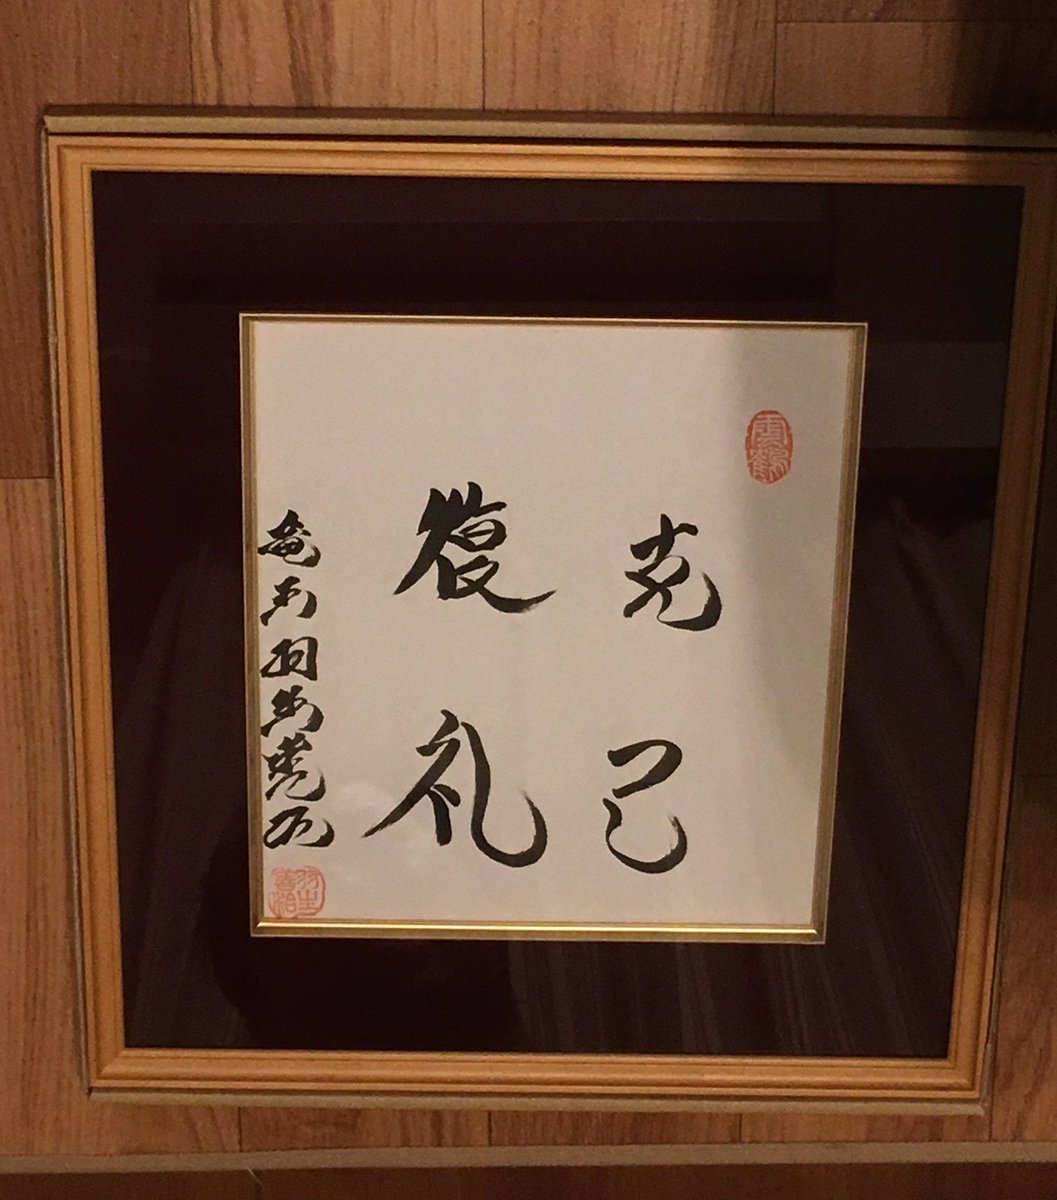 雲鶴
克己
復礼
竜王羽生善治
羽生
善治